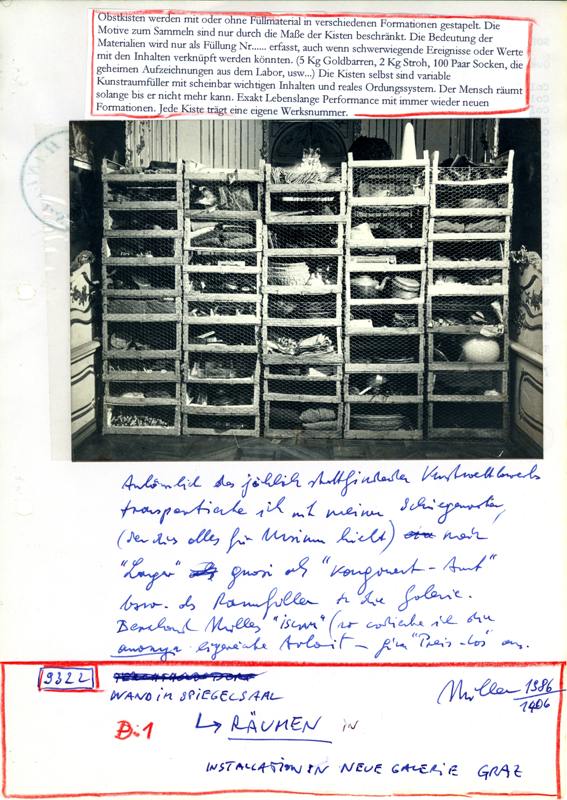 Obstkisten werden mit oder ohne Füllmaterial in verschiedenen Formationen gestapelt. Die
Motive zum Sammeln sind nur durch die Maße der Kisten beschränkt. Die Bedeutung der
Materialien wird nur als Füllung Nr...... erfasst, auch wenn schwerwiegende Ereignisse oder Werte
mit den Inhalten verknüpft werden könnten. (5 Kg Goldbarren, 2 Kg Stroh, 100 Paar Socken, die
geheimen Aufzeichnungen aus dem Labor, usw...) Die Kisten selbst sind variable
Kunstraumfüller mit scheinbar wichtigen Inhalten und reales Ordungssystem. Der Mensch räumt
solange bis er nicht mehr kann. Exakt Lebenslange Performance mit immer wieder neuen
Formationen. Jede Kiste trägt eine eigene Werksnummer.
Anlässlich des jährlich stattfindenden Kunstwettbewerbs
transportierte ich mit meiner Schwiegermutter,
(der dies alles für hielt) mein
"Lager" quasi als "Kunst"
bzw. als Raumfüller in die Galerie.
(so ich die
anonym eigereichte Arbeit – "Preis-los" an.
9322
WAND IM SPIEGELSAAL
Müller 1986
1406
B:1
↳ RÄUMEN IN
INSTALLATION IN NEUE GALERIE GRAZ